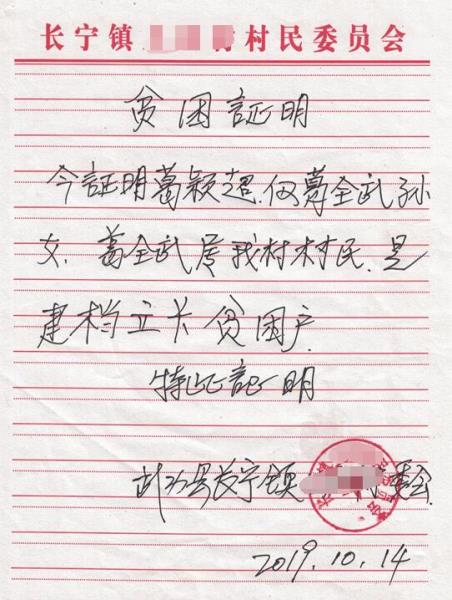 长宁镇 村民委员会
贫困証明
今証明葛颖超.葛全武孙
女,葛全武居我村村民.是
建档立卡贫困户.
特此証明
武功县长宁镇 委会
2019.10.14